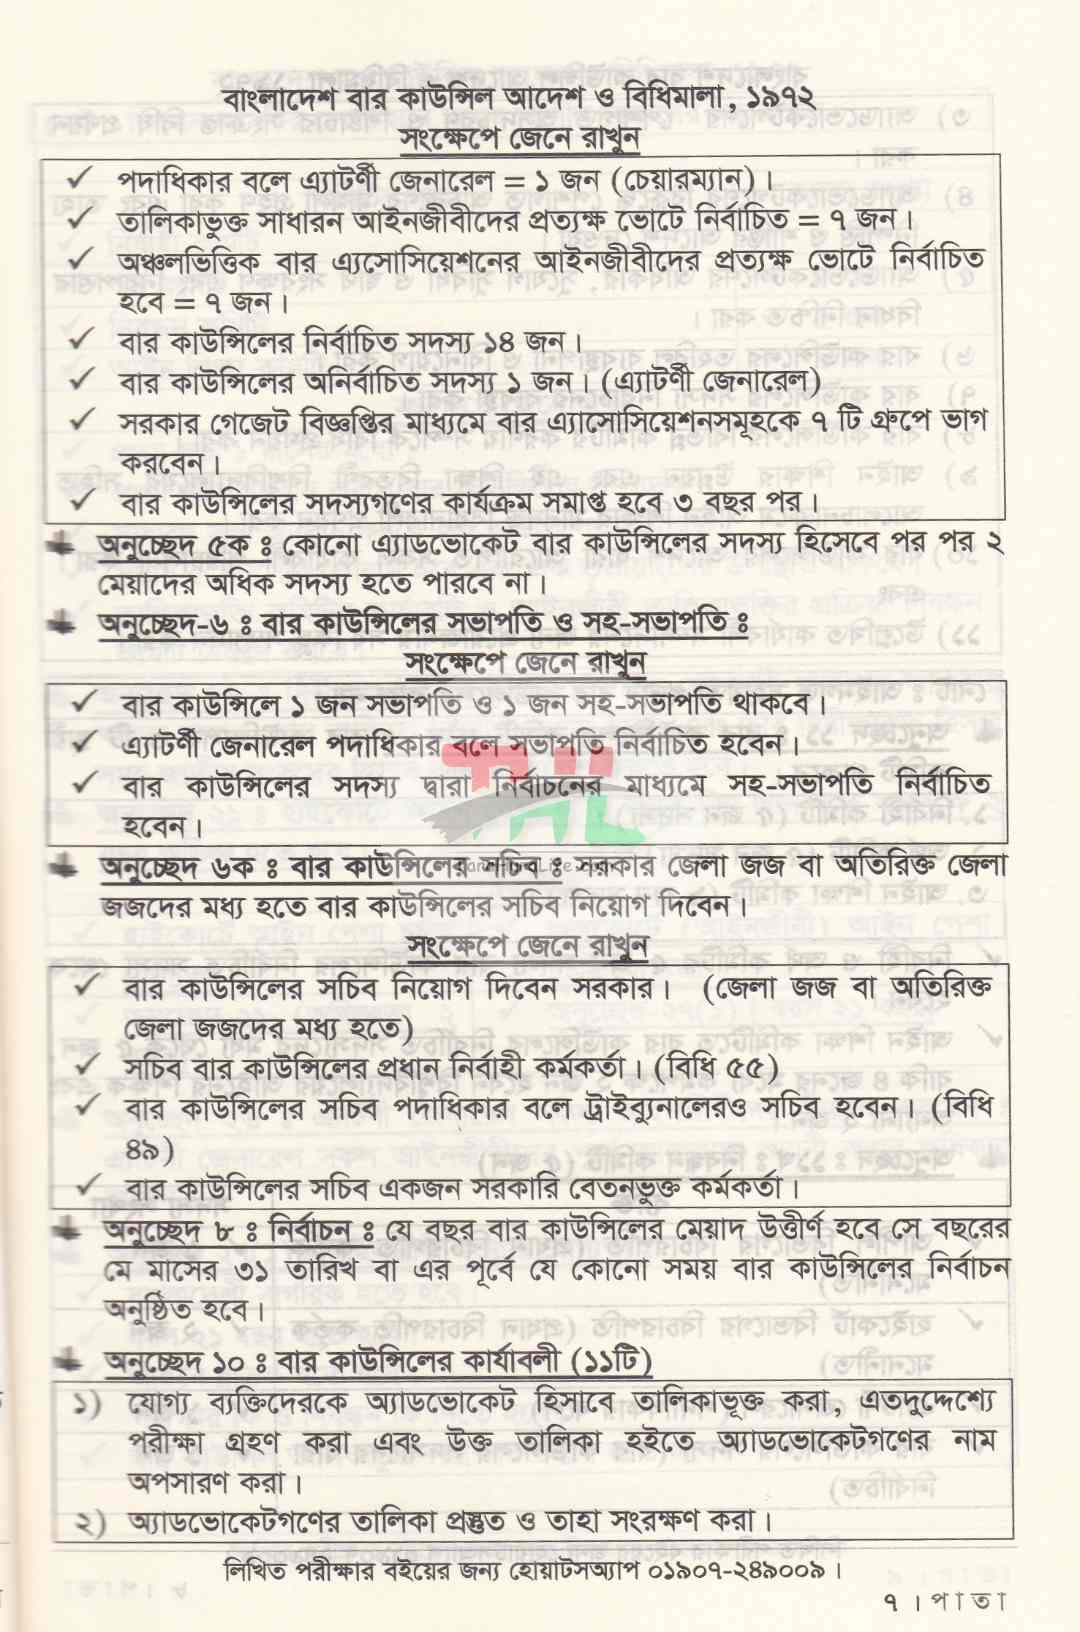 বাংলাদেশ বার কাউন্সিল আদেশ ও বিধিমালা, ১৯৭২
সংক্ষেপে জেনে রাখুন
✓ পদাধিকার বলে এ্যাটর্ণী জেনারেল = ১ জন (চেয়ারম্যান)।
✓ তালিকাভুক্ত সাধারন আইনজীবীদের প্রত্যক্ষ ভোটে নির্বাচিত = ৭ জন।
✓ অঞ্চলভিত্তিক বার এ্যসোসিয়েশনের আইনজীবীদের প্রত্যক্ষ ভোটে নির্বাচিত
হবে = ৭ জন।
✓ বার কাউন্সিলের নির্বাচিত সদস্য ১৪ জন।
✓ বার কাউন্সিলের অনির্বাচিত সদস্য ১ জন। (এ্যাটর্ণী জেনারেল)
✓ সরকার গেজেট বিজ্ঞপ্তির মাধ্যমে বার এ্যাসোসিয়েশনসমূহকে ৭ টি গ্রুপে ভাগ
করবেন।
✓ বার কাউন্সিলের সদস্যগণের কার্যক্রম সমাপ্ত হবে ৩ বছর পর।
অনুচ্ছেদ ৫ক ঃ কোনো এ্যাডভোকেট বার কাউন্সিলের সদস্য হিসেবে পর পর ২
মেয়াদের অধিক সদস্য হতে পারবে না।
অনুচ্ছেদ-৬ ঃ বার কাউন্সিলের সভাপতি ও সহ-সভাপতি ঃ
সংক্ষেপে জেনে রাখুন
✓ বার কাউন্সিলে ১ জন সভাপতি ও ১ জন সহ-সভাপতি থাকবে।
✓ এ্যাটর্ণী জেনারেল পদাধিকার বলে সভাপতি নির্বাচিত হবেন।
✓ বার কাউন্সিলের সদস্য দ্বারা নির্বাচনের মাধ্যমে সহ-সভাপতি নির্বাচিত
হবেন।
অনুচ্ছেদ ৬ক ঃ বার কাউন্সিলের সচিব ঃ সরকার জেলা জজ বা অতিরিক্ত জেলা
জজদের মধ্য হতে বার কাউন্সিলের সচিব নিয়োগ দিবেন।
সংক্ষেপে জেনে রাখুন
✓ বার কাউন্সিলের সচিব নিয়োগ দিবেন সরকার। (জেলা জজ বা অতিরিক্ত
জেলা জজদের মধ্য হতে)
✓ সচিব বার কাউন্সিলের প্রধান নির্বাহী কর্মকর্তা। (বিধি ৫৫)
✓ বার কাউন্সিলের সচিব পদাধিকার বলে ট্রাইব্যুনালেরও সচিব হবেন। (বিধি
৪৯)
✓ বার কাউন্সিলের সচিব একজন সরকারি বেতনভুক্ত কর্মকর্তা।
অনুচ্ছেদ ৮ ঃ নির্বাচন ঃ যে বছর বার কাউন্সিলের মেয়াদ উত্তীর্ণ হবে সে বছরের
মে মাসের ৩১ তারিখ বা এর পূর্বে যে কোনো সময় বার কাউন্সিলের নির্বাচন
অনুষ্ঠিত হবে।
অনুচ্ছেদ ১০ ঃ বার কাউন্সিলের কার্যাবলী (১১টি)
১) যোগ্য ব্যক্তিদেরকে অ্যাডভোকেট হিসাবে তালিকাভূক্ত করা, এতদুদ্দেশ্যে
পরীক্ষা গ্রহণ করা এবং উক্ত তালিকা হইতে অ্যাডভোকেটগণের নাম
অপসারণ করা।
২) অ্যাডভোকেটগণের তালিকা প্রস্তুত ও তাহা সংরক্ষণ করা।
লিখিত পরীক্ষার বইয়ের জন্য হোয়াটসঅ্যাপ ০১৯০৭-২৪৯০০৯।
৭ । পাতা